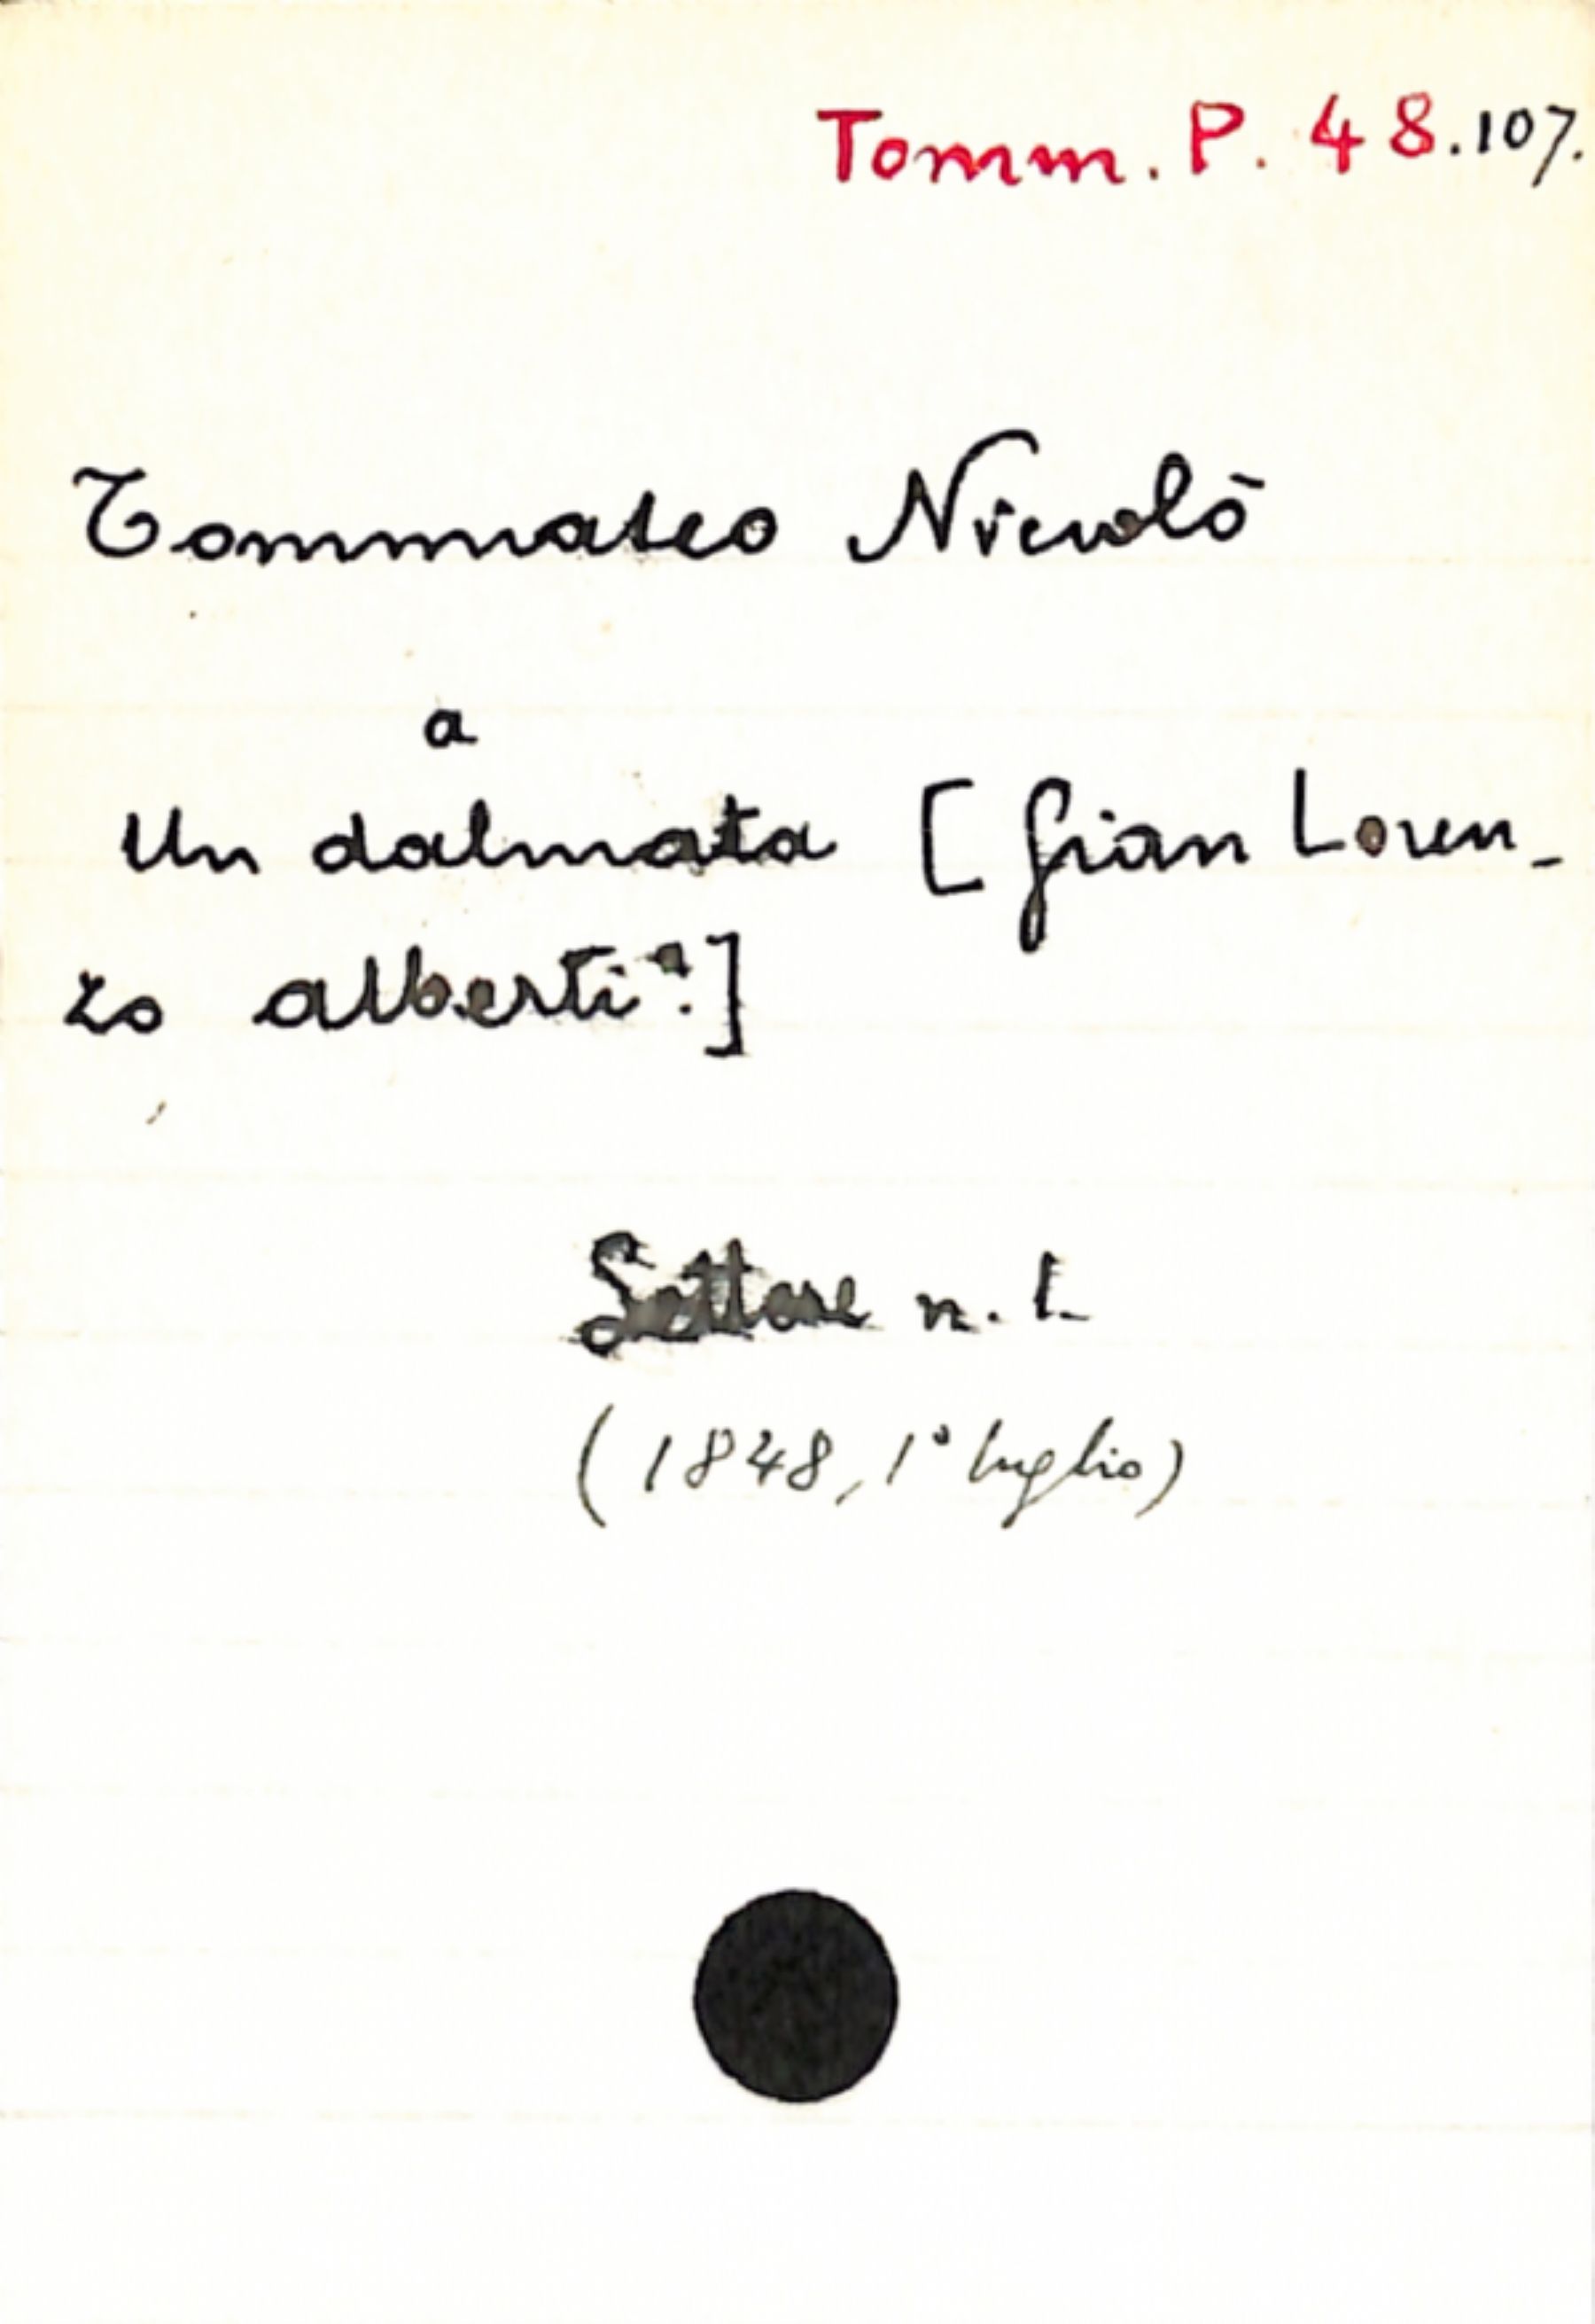 Tomm. P. 48.107.
Tommaseo Nicolò
a
Un dalmata [Gian Loren-
zo Alberti?]
Lettere n. 1
(1848, 1° luglio)